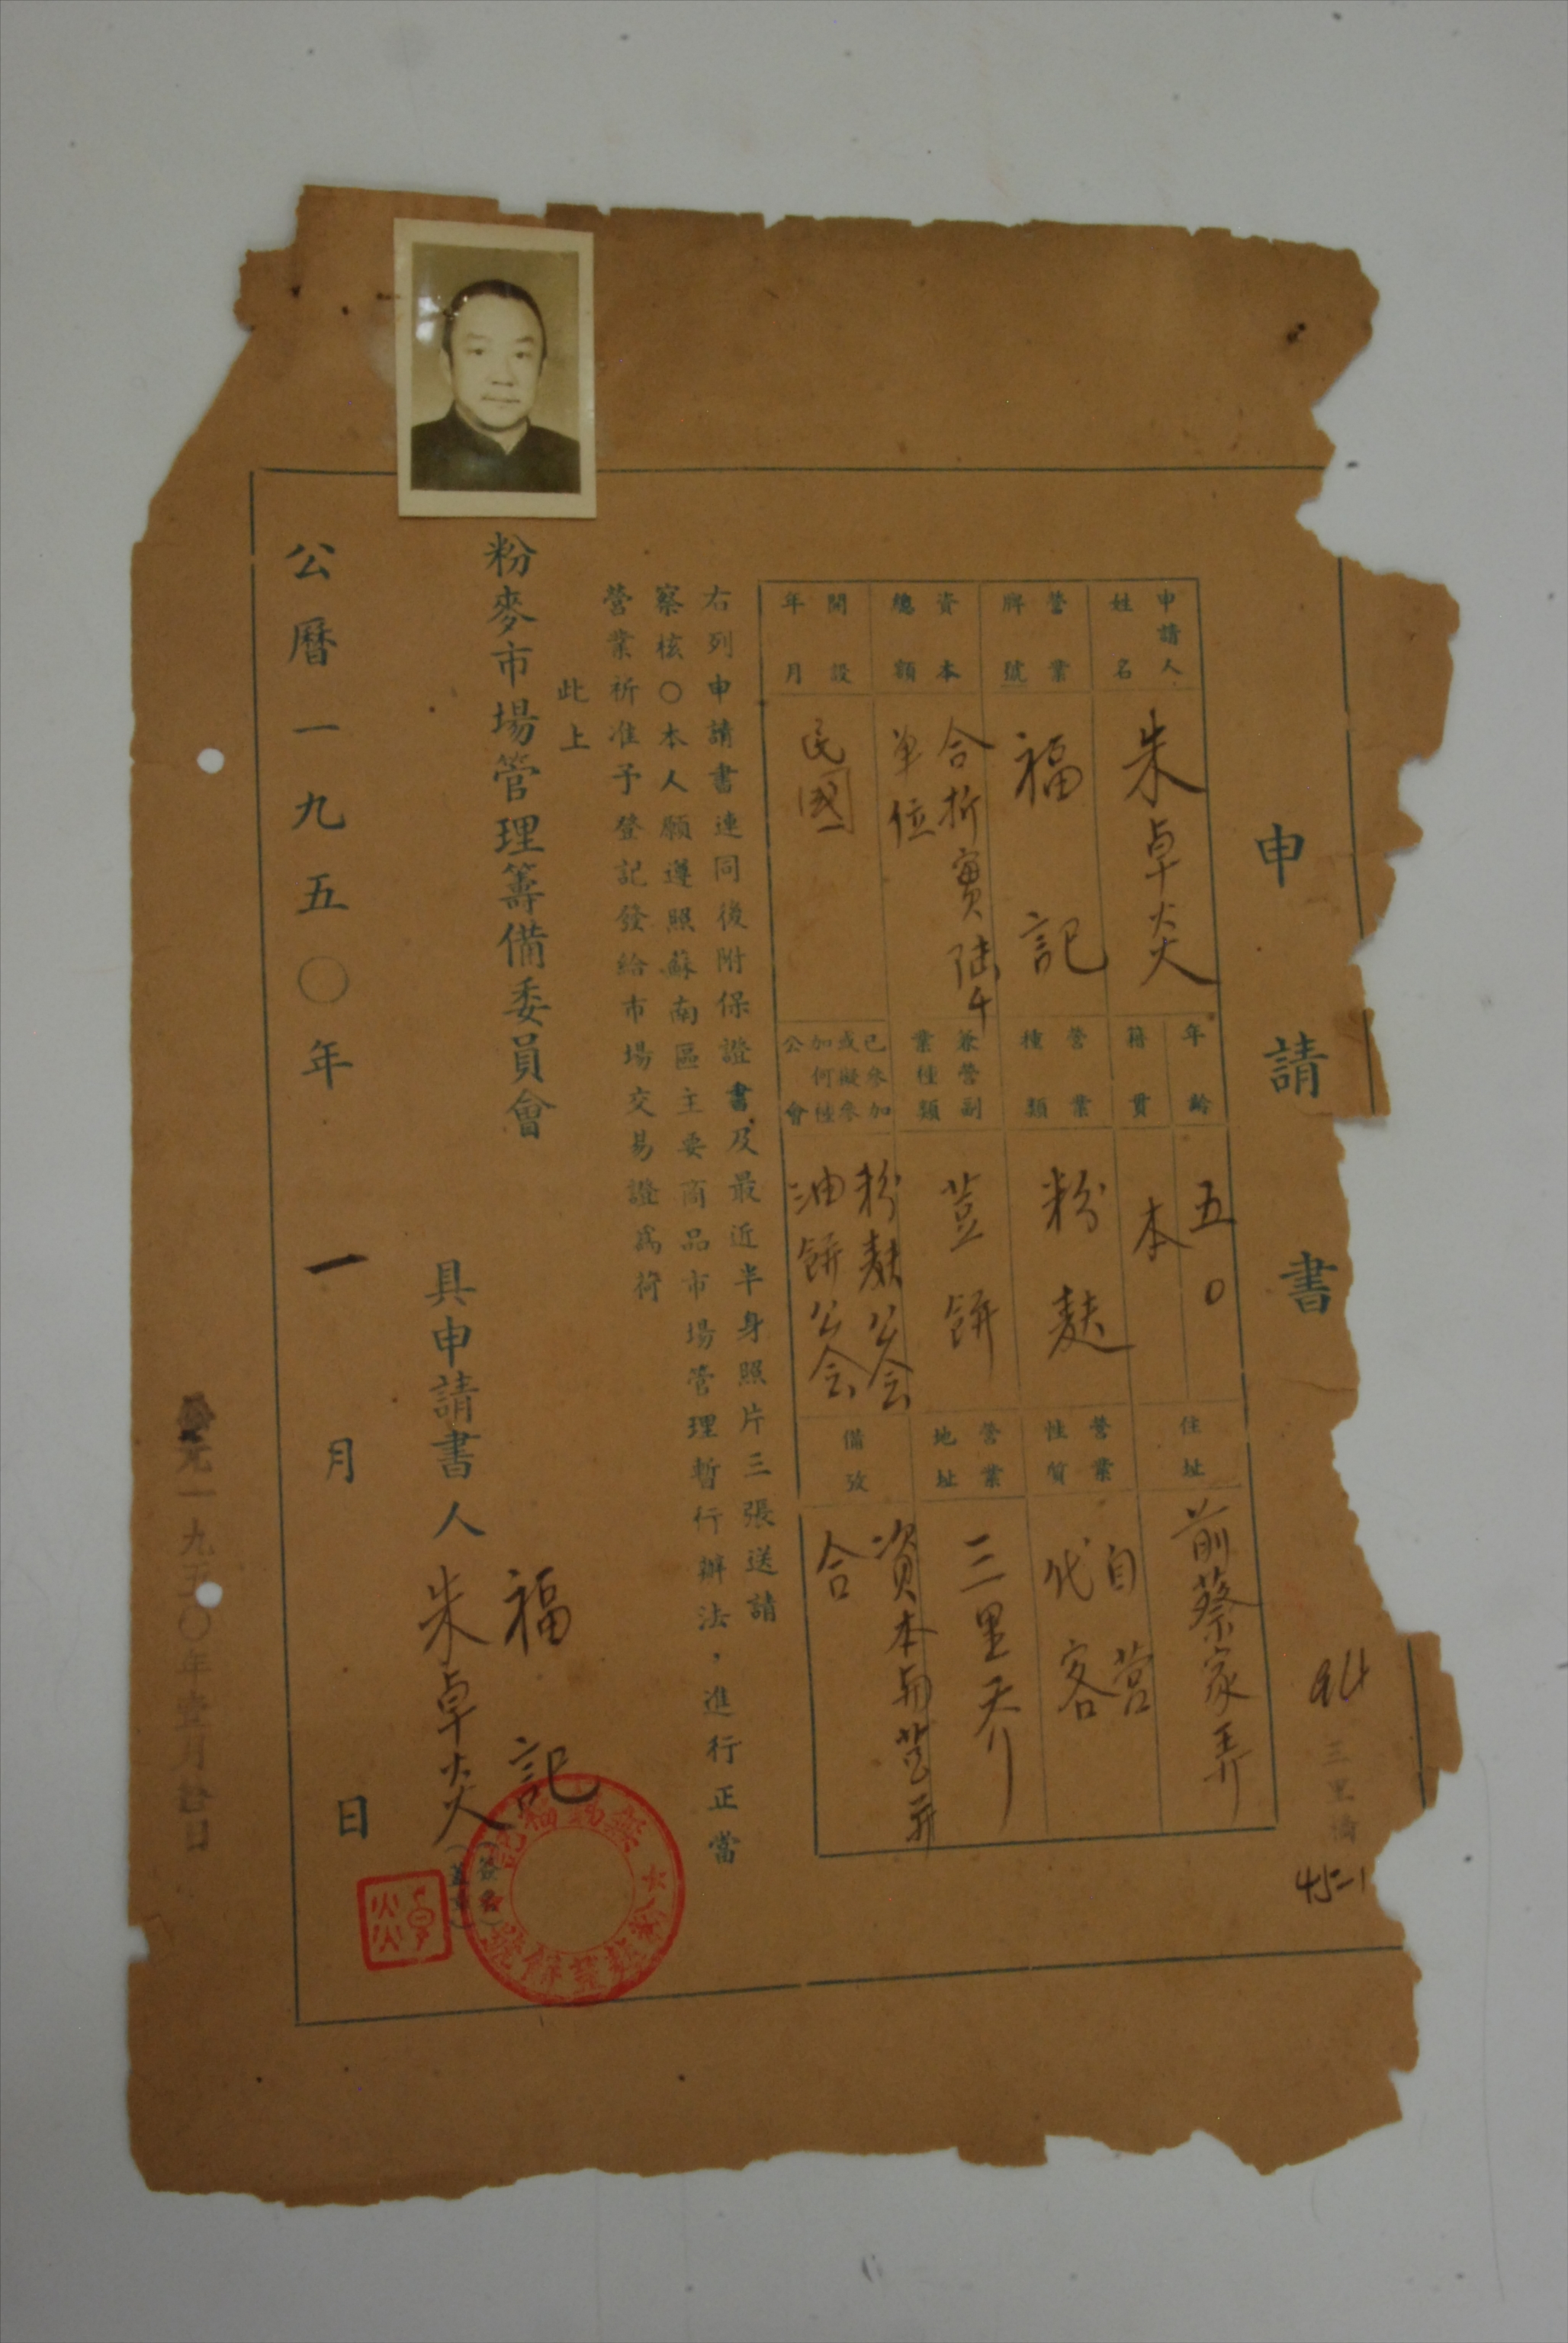 申請書
94
三里橋
45-1
申請人姓名
朱卓炎
年齡
五〇
籍貫
本
住址
前蔡家弄
營業牌號
福記
營業種類
粉麩
營業性質
自營
代客
資本總額
合折實陸千
單位
兼營副業種類
荳餅
營業地址
三里夰
開設年月
民國
已參加或擬參加何種公會
粉麸公会
油餅公会
備攷
資本與荳餅
合
右列申請書連同後附保證書及最近半身照片三張送請
察核〇本人願遵照蘇南區主要商品市場管理暫行辦法，進行正當
營業祈准予登記發給市場交易證爲荷
此上
粉麥市場管理籌備委員會
具申請書人
福記
朱卓炎
（簽名）
（蓋章）
卓炎
公曆一九五〇年一月 日
元一九五〇年壹月 日